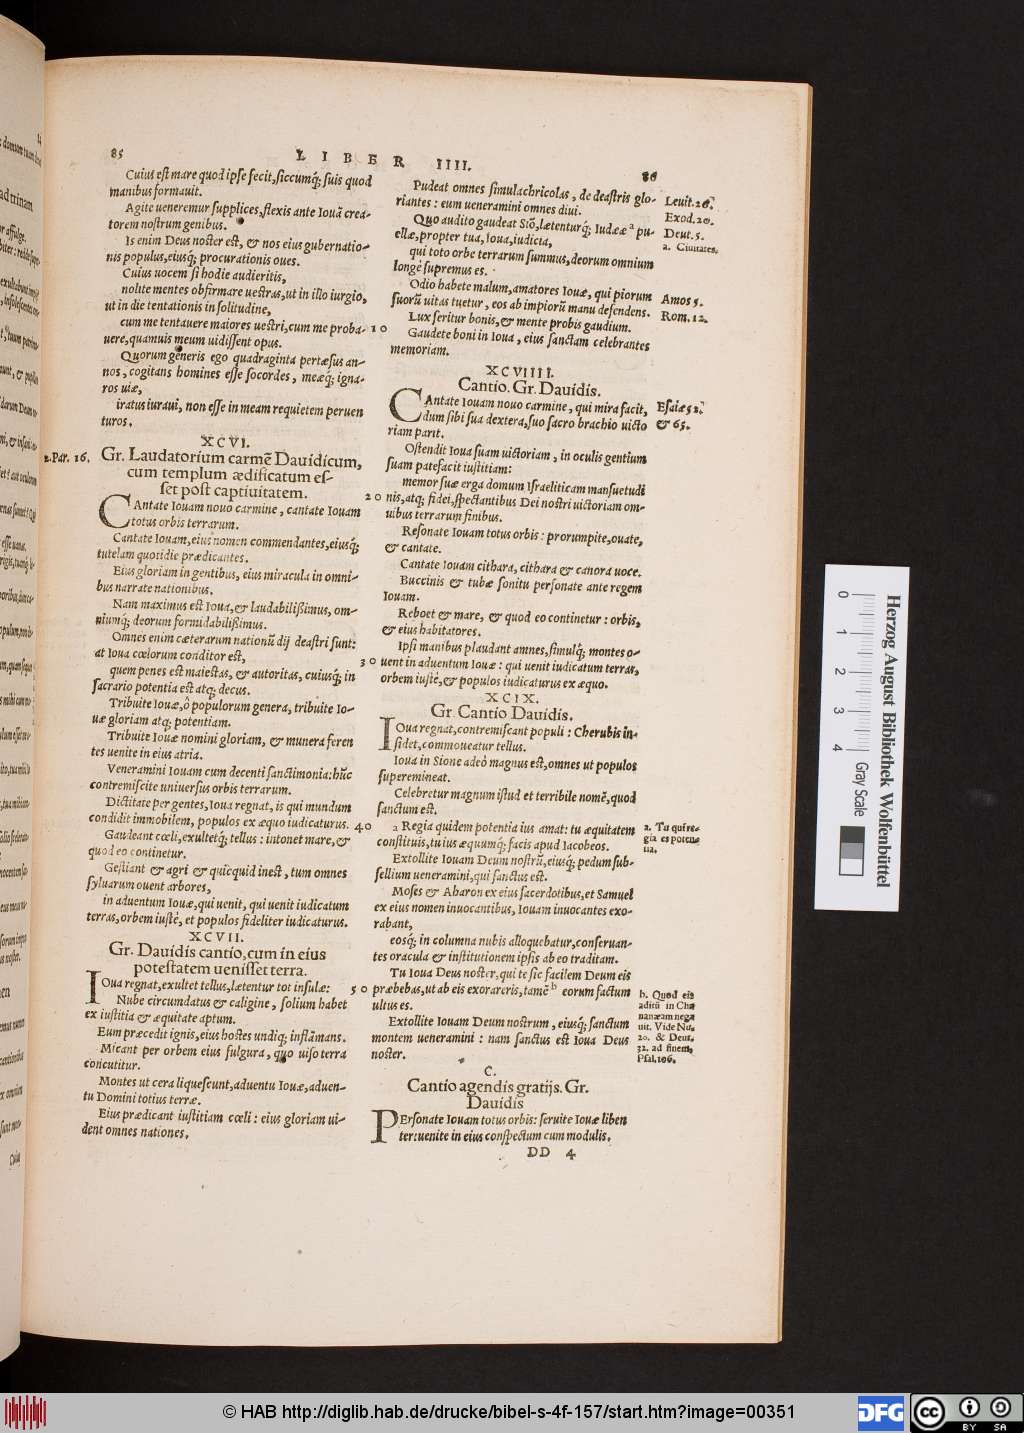 85
LIBER IIII.
86
Cuius est mare quod ipse fecit, siccumq́; suis quod
manibus formauit.
Agite ueneremur supplices, flexis ante Iouã crea-
torem nostrum genibus.
Is enim Deus noster est, & nos eius gubernatio-
nis populus, eiusq́; procurationis oues.
Cuius uocem si hodie audieritis,
nolite mentes obfirmare uestras, ut in illo iurgio,
ut in die tentationis in solitudine,
cum me tentauere maiores uestri, cum me proba-
uere, quamuis meum uidissent opus.
Quorum generis ego quadraginta pertæsus an-
nos, cogitans homines esse socordes, meæq́; igna-
ros uiæ,
iratus iuraui, non esse in meam requietem peruen
turos.
XCVI.
2. Par. 16.
Gr. Laudatorium carmẽ Dauidicum,
cum templum ædificatum es-
set post captiuitatem.
CAntate Iouam nouo carmine, cantate Iouam
totus orbis terrarum.
Cantate Iouam, eius nomen commendantes, eiusq́;
tutelam quotidie prædicantes.
Eius gloriam in gentibus, eius miracula in omni-
bus narrate nationibus.
Nam maximus est Ioua, & laudabilißimus, om-
niumq́; deorum formidabilißimus.
Omnes enim cæterarum nationũ dij deastri sunt:
at Ioua cœlorum conditor est,
quem penes est maiestas, & autoritas, cuiusq́; in
sacrario potentia est atq; decus.
Tribuite Iouæ, ô populorum genera, tribuite Io-
uæ gloriam atq; potentiam.
Tribuite Iouæ nomini gloriam, & munera feren
tes uenite in eius atria.
Veneramini Iouam cum decenti sanctimonia: hũc
contremiscite uniuersus orbis terrarum.
Dictitate per gentes, Ioua regnat, is qui mundum
condidit immobilem, populos ex æquo iudicaturus.
Gaudeant cœli, exultetq́; tellus: intonet mare, &
quod eo continetur.
Gestiant & agri & quicquid inest, tum omnes
syluarum ouent arbores,
in aduentum Iouæ, qui uenit, qui uenit iudicatum
terras, orbem iustè, et populos fideliter iudicaturus.
XCVII.
Gr. Dauidis cantio, cum in eius
potestatem uenisset terra.
IOua regnat, exultet tellus, lætentur tot insulæ:
Nube circumdatus & caligine, solium habet
ex iustitia & æquitate aptum.
Eum præcedit ignis, eius hostes undiq; inflãmans.
Micant per orbem eius fulgura, quo uiso terra
concutitur.
Montes ut cera liquescunt, aduentu Iouæ, aduen-
tu Domini totius terræ.
Eius prædicant iustitiam cœli: eius gloriam ui-
dent omnes nationes.
10
20
30
40
50
Pudeat omnes simulachricolas, de deastris glo-
riantes: eum ueneramini omnes diui.
Quo audito gaudeat Siõ, lætenturq́; Iudææ a pu-
ellæ, propter tua, Ioua, iudicia,
qui toto orbe terrarum summus, deorum omnium
longè supremus es.
Odio habete malum, amatores Iouæ, qui piorum
suorũ uitas tuetur, eos ab impiorũ manu defendens.
Lux seritur bonis, & mente probis gaudium.
Gaudete boni in Ioua, eius sanctam celebrantes
memoriam.
Leuit. 26.
Exod. 20.
Deut. 5.
a. Ciuitates.
Amos 5.
Rom. 12.
XCVIIII.
Cantio. Gr. Dauidis.
CAntate Iouam nouo carmine, qui mira facit,
dum sibi sua dextera, suo sacro brachio uicto
riam parit.
Esaiæ 52.
& 65.
Ostendit Ioua suam uictoriam, in oculis gentium
suam patefacit iustitiam:
memor suæ erga domum Israeliticam mansuetudi
nis, atq; fidei, spectantibus Dei nostri uictoriam om-
nibus terrarum finibus.
Resonate Iouam totus orbis: prorumpite, ouate,
& cantate.
Cantate Iouam cithara, cithara & canora uoce.
Buccinis & tubæ sonitu personate ante regem
Iouam.
Reboet & mare, & quod eo continetur: orbis,
& eius habitatores.
Ipsi manibus plaudant amnes, simulq́; montes o-
uent in aduentum Iouæ: qui uenit iudicatum terras,
orbem iustè, & populos iudicaturus ex æquo.
XCIX.
Gr. Cantio Dauidis.
IOua regnat, contremiscant populi: Cherubis in-
sidet, commoueatur tellus.
Ioua in Sione adeò magnus est, omnes ut populos
superemineat.
Celebretur magnum istud et terribile nomẽ, quod
sanctum est.
a Regia quidem potentia ius amat: tu æquitatem
constituis, tu ius æquumq́; facis apud Iacobeos.
a. Tu qui re-
gia es poten-
tia.
Extollite Iouam Deum nostrũ, eiusq́; pedum sub-
sellium ueneramini, qui sanctus est.
Moses & Aharon ex eius sacerdotibus, et Samuel
ex eius nomen inuocantibus, Iouam inuocantes exo-
rabant,
eosq́; in columna nubis alloquebatur, conseruan-
tes oracula & institutionem ipsis ab eo traditam.
Tu Ioua Deus noster, qui te sic facilem Deum eis
præbebas, ut ab eis exorareris, tamẽ b eorum factum
ultus es.
b. Quod eis
aditũ in Cha
nanæam nega
uit. Vide Nu.
20. & Deut.
32. ad finem,
Psal. 106.
Extollite Iouam Deum nostrum, eiusq́; sanctum
montem ueneramini: nam sanctus est Ioua Deus
noster.
C.
Cantio agendis gratijs. Gr.
Dauidis
PErsonate Iouam totus orbis: seruite Iouæ liben
ter: uenite in eius conspectum cum modulis.
DD 4
0 1 2 3 4
Gray Scale
Herzog August Bibliothek Wolfenbüttel
© HAB http://diglib.hab.de/drucke/bibel-s-4f-157/start.htm?image=00351
DFG
cc
BY SA